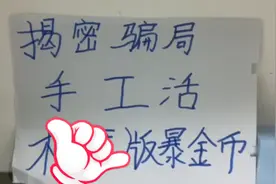 揭密骗局
手工活
版暴金币